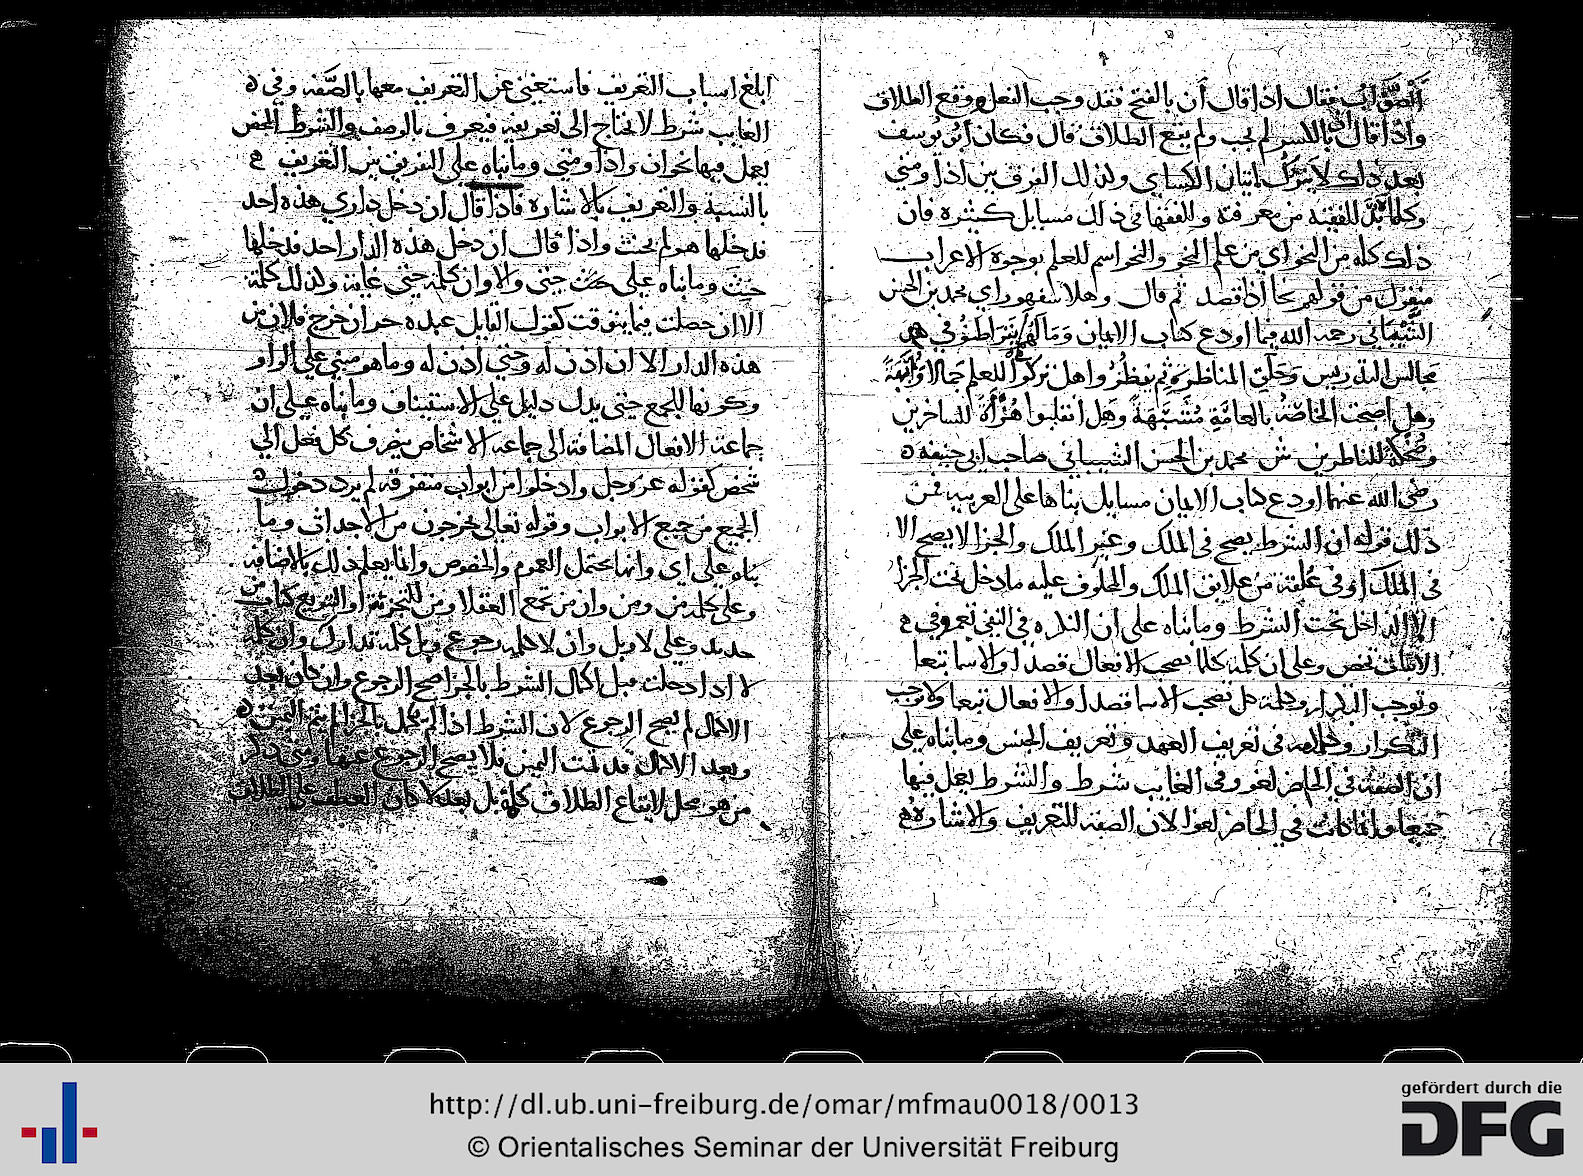 الصَّوَّابُ فقال اذا قال أن بالفتح فقد وجب الفعل ووقع الطلاق
واذا قال إن بالكسر لم يجب ولم يقع الطلاق قال فكان أبو يوسف
بعد ذلك لا يترك اتيان الكساي وكذلك الفرق بين اذا ومتى
وكلما لا بدّ للفقيه من معرفته وللفقها في ذلك مسايل كثيرة فان
ذلك كله من النحو اي من علم النحو والنحو اسم للعلم بوجوه الاعراب
منقول من قولهم نحا اذا قصد ثم قال وهلا سفهوا راي محمد بن الحسن
الشَّيْبَاني رحمه الله فيما اودع كتاب الايمان وَمَا لَهُمْ يَتَراطَنُوْ في
مجالس التدريس وَحَلَق المناظرة ثم نظرُوا هل تركوا للعلم جمالا وأُبَّهَةً
وهل اصبحت الخاصّة بالعامَّةِ مُشَبَّهَةً وَهل انقلبوا هُزْأَةً للساخرين
وضُحْكَةً للناظرين ش محمد بن الحسن الشيباني صاحب ابي حنيفة
رضي الله عنهما اودع كتاب الايمان مسايل بناها على العربية فمن
ذلك قوله ان الشرط يصح في الملك وغير الملك والجزا لا يصح الا
في الملك او في عُلْقة من علايق الملك والمحلوف عليه ما دخل تحت الجزا
الا الداخل تحت الشرط وما بناه على ان النكره في النفي تعم وفي
الاثبات تخص وعلى ان كلمة كلما تصحب الافعال قصدا والاسما تبعا
وتوجب التكرار وكلمة كل تصحب الاسما قصدا والافعال تبعا ولا توجب
التكرار وكلامه في تعريف العهد وتعريف الجنس وما بناه على
ان الصفة في الحاضر لغو وفي الغايب شرط والشرط يعمل فيها
جميعا وانما كانت في الحاضر لغوا لان الصفة للتعريف والاشارة
ابلغ اسباب التعريف فاستغنى عن التعريف معها بالصّفة وفي
الغايب شرط لانه يحتاج الى تعريفه فيعرف بالوصف والشرط المحض
يعمل فيها نحو ان واذا ومتى وما بناه على الفرق بين التعريف
بالنسبة والتعريف بالاشارة فاذا قال ان دخل داري هذه احد
فدخلها هو لم يحنث واذا قال ان دخل هذه الدار احد فدخلها
حنث وما بناه على حتى والا وان كلمة حتى غاية وكذلك كلمة
الا ان حصلت فيما يتوقت كقول القايل عبده حر ان خرج فلان من
هذه الدار الا ان اذن له وحتى اذن له وما هو مبني على الواو
وكونها للجمع حتى يدل دليل على الاستيناف وما بناه على ان
جماعة الافعال المضافة الى جماعة الاشخاص ينصرف كل فعل الى
شخص كقوله عز وجل وادخلوا من ابواب متفرقة لم يرد دخول
الجميع من جميع الابواب وقوله تعالى يخرجون من الاجداث وما
بناه على اي وانها تحتمل العموم والخصوص وانما يعلم ذلك بالاضافة
وعلى كلمة من ومن وان من تجمع العقلا ومن للتجزئة او التنويع كتاب من
حديد وعلى لا وبل وان لا كلمة رجوع وبل كلمة تدارك وان كلمة
لا اذا دخلت قبل اكمال الشرط بالجزا صح الرجوع وان كان بعد
الاكمال لم يصح الرجوع لان الشرط اذا لم يكمل بالجزا لم يتم اليمين
وبعد الاكمال قد تمت اليمين فلا يصح الرجوع عنها ومتى ذكر
من هو محل لايقاع الطلاق كلمة بل بعد لا كان العطف على الطلاق
http://dl.ub.uni-freiburg.de/omar/mfmau0018/0013
© Orientalisches Seminar der Universität Freiburg
gefördert durch die
DFG